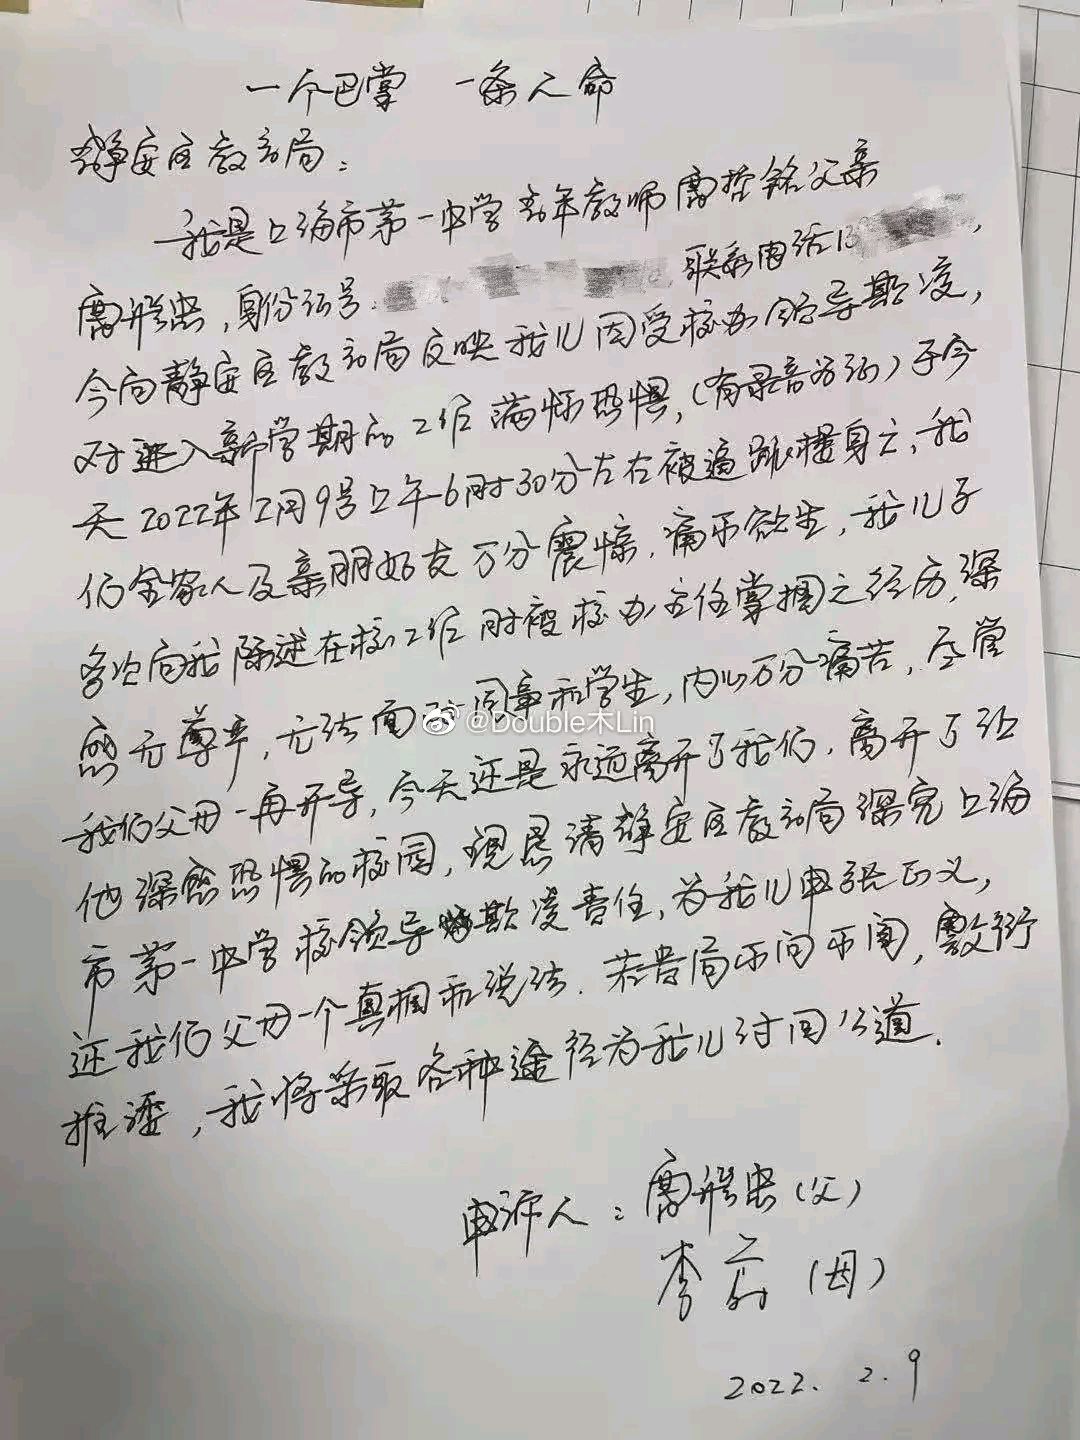 一个巴掌 一条人命
静安区教育局：
我是上海市第一中学青年教师唐哲铭父亲
唐 忠，身份证号 ，联系电话13 ，
今向静安区教育局反映我儿因受校办领导欺凌，
对进入新学期的工作满怀恐惧，（有录音为证）于今
天2022年2月9号上午6时30分左右被逼跳楼身亡，我
们全家人及亲朋好友万分震惊，痛不欲生，我儿子
多次向我陈述在校工作时被校办主任掌掴之经历，深
感无尊严，无法面对同事和学生，内心万分痛苦，尽管
我们父母一再开导，今天还是永远离开了我们，离开了让
他深感恐惧的校园，现恳请静安区教育局深究上海
市第一中学校领导欺凌责任，为我儿申张正义，
还我们父母一个真相和说法．若贵局不问不闻，敷衍
推诿，我将采取各种途径为我儿讨回公道．
申诉人：唐 忠（父）
李 （母）
2022．2．9
@Double木Lin